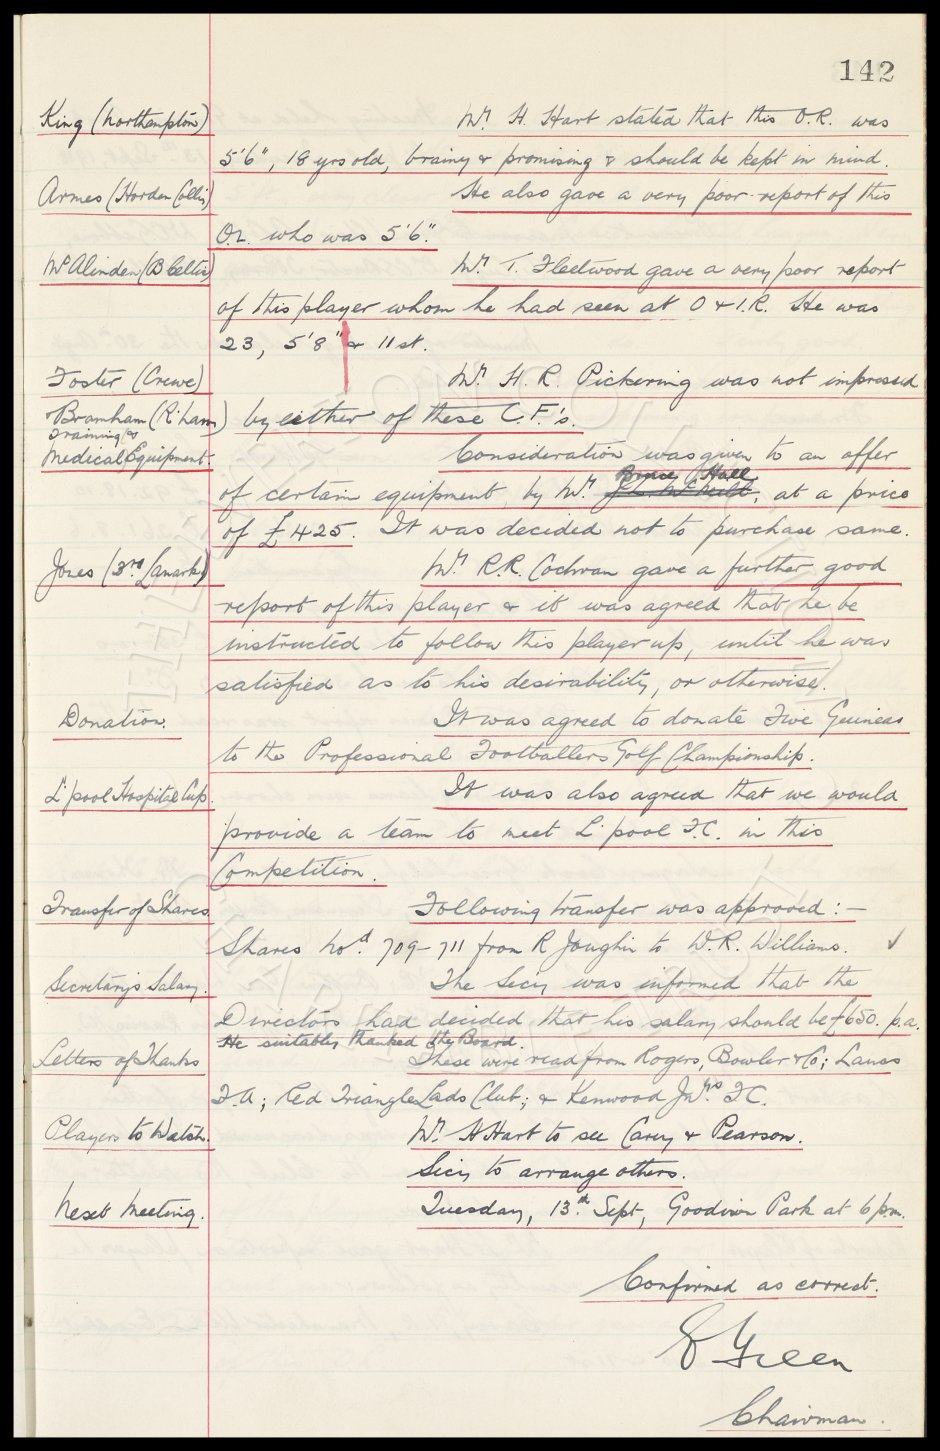 142
King (Northampton) Mr. H. Hart stated that this O.R. was
5'6", 18 yrs old, brainy & promising & should be kept in mind.
Armes (Horden Collis) He also gave a very poor report of this
O.L. who was 5'6".
McAlinden (B Celtic) Mr. T. Fleetwood gave a very poor report
of this player whom he had seen at O & I.R. He was
23, 5'8" & 11 st.
Foster (Crewe) Mr. H. R. Pickering was not impressed
Bramham (R'ham) by either of these C.F.'s.
Training &
Medical Equipment. Consideration was given to an offer
Bruce Hall
of certain equipment, by Mr. , at a price
of £425. It was decided not to purchase same.
Jones (3rd Lanark) Mr. R.R. Cochran gave a further good
report of this player & it was agreed that he be
instructed to follow this player up, until he was
satisfied as to his desirability, or otherwise.
Donation. It was agreed to donate Five Guineas
to the Professional Footballers Golf Championship.
L'pool Hospital Cup. It was also agreed that we would
provide a team to meet L'pool F.C. in this
Competition.
Transfer of Shares. Following transfer was approved:-
Shares Nod. 709-711 from R Joughin to W.R. Williams. ✓
Secretary's Salary. The Secy was informed that the
Directors had decided that his salary should be £650. p.a.
He suitably thanked the Board.
Letters of Thanks These were read from Rogers, Bowler & Co; Lancs
F.A; Red Triangle Lads Club; & Kenwood Jnrs F.C.
Players to Watch. Mr. H Hart to see Carey & Pearson.
Secy to arrange others.
Next Meeting. Tuesday, 13th Sept, Goodison Park at 6 pm.
Confirmed as correct.
E Green
Chairman.